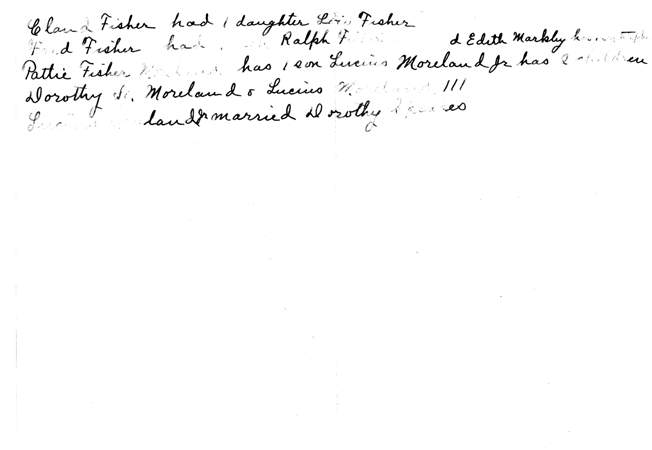 Claud Fisher had 1 daughter Fisher
Fred Fisher had Ralph Edith Markley
Pattie Fisher Moreland has 1 son Lucius Moreland Jr has 2 children
Dorothy Moreland & Lucius Moreland III
land Jr married Dorothy